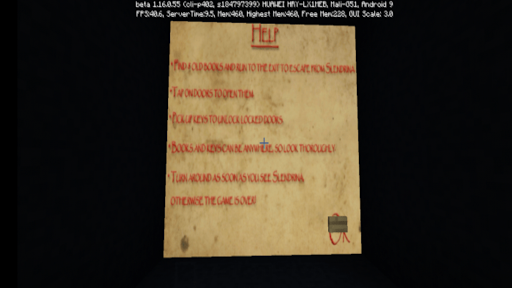 beta 1.16.0.55 (cli-p402, s184797399) HUAWEI MRY-LX1MEB, Mali-G51, Android 9
FPS:40.6, ServerTime:9.5, Mem:460, Highest Mem:460, Free Mem:228, GUI Scale: 3.0
HELP
• FIND 4 OLD BOOKS AND RUN TO THE EXIT TO ESCAPE FROM SLENDRINA
• TAP ON DOORS TO OPEN THEM
• PICK UP KEYS TO UNLOCK LOCKED DOORS
• BOOKS AND KEYS CAN BE ANYWHERE, SO LOOK THOROUGHLY
• TURN AROUND AS SOON AS YOU SEE SLENDRINA
OTHERWISE THE GAME IS OVER!
OK